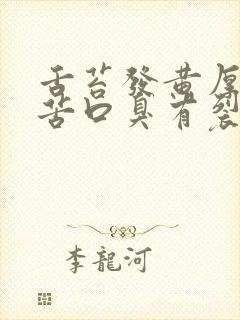 舌苔發黄厚
苦口臭有裂
李龍河